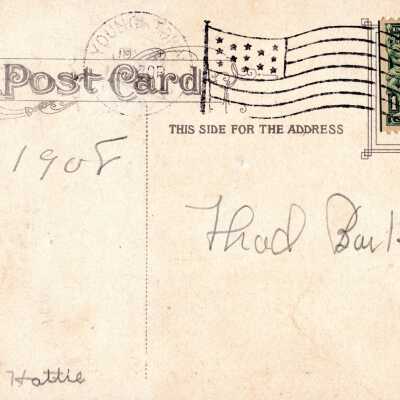 YOUNGSTOWN
Post Card
THIS SIDE FOR THE ADDRESS
1908
Thad
Hattie